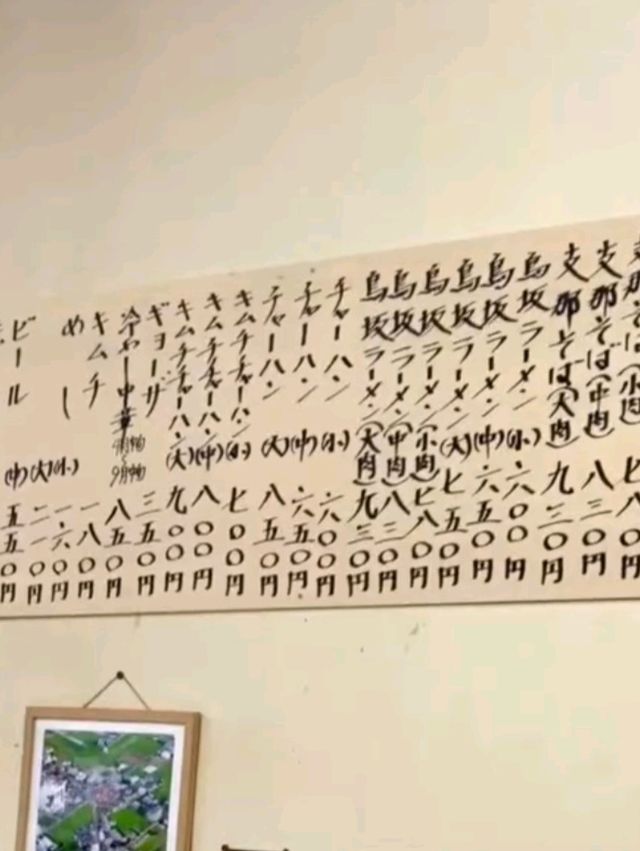 支那そば(小肉)七八〇円
支那そば(中肉)八三〇円
支那そば(大肉)九三〇円
烏坂ラーメン(小)六〇〇円
烏坂ラーメン(中)六五〇円
烏坂ラーメン(大)七五〇円
烏坂ラーメン(小肉)七八〇円
烏坂ラーメン(中肉)八三〇円
烏坂ラーメン(大肉)九三〇円
チャーハン(小)六〇〇円
チャーハン(中)六五〇円
チャーハン(大)八五〇円
キムチチャーハン(小)七〇〇円
キムチチャーハン(中)八〇〇円
キムチチャーハン(大)九〇〇円
ギョーザ三五〇円
冷やし中華 八五〇円
キムチ一八〇円
めし(小)一六〇円
(大)二一〇円
ビール(中)五五〇円